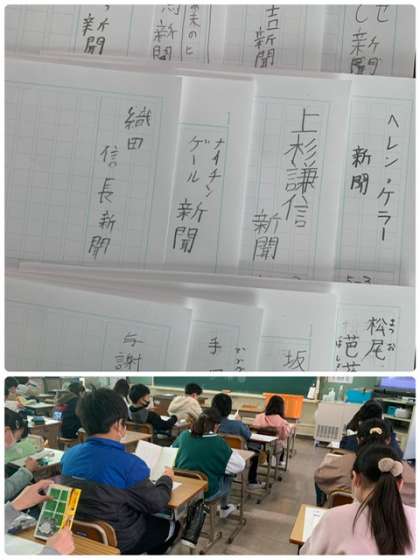 新聞
新聞
吉新聞
し新聞
せ新聞
織田
信長新聞
ナイチン
ゲール新聞
上杉謙信
新聞
ヘレン・ケラー
新聞
5-3
与謝
手
坂
まつお
松尾
芭蕉